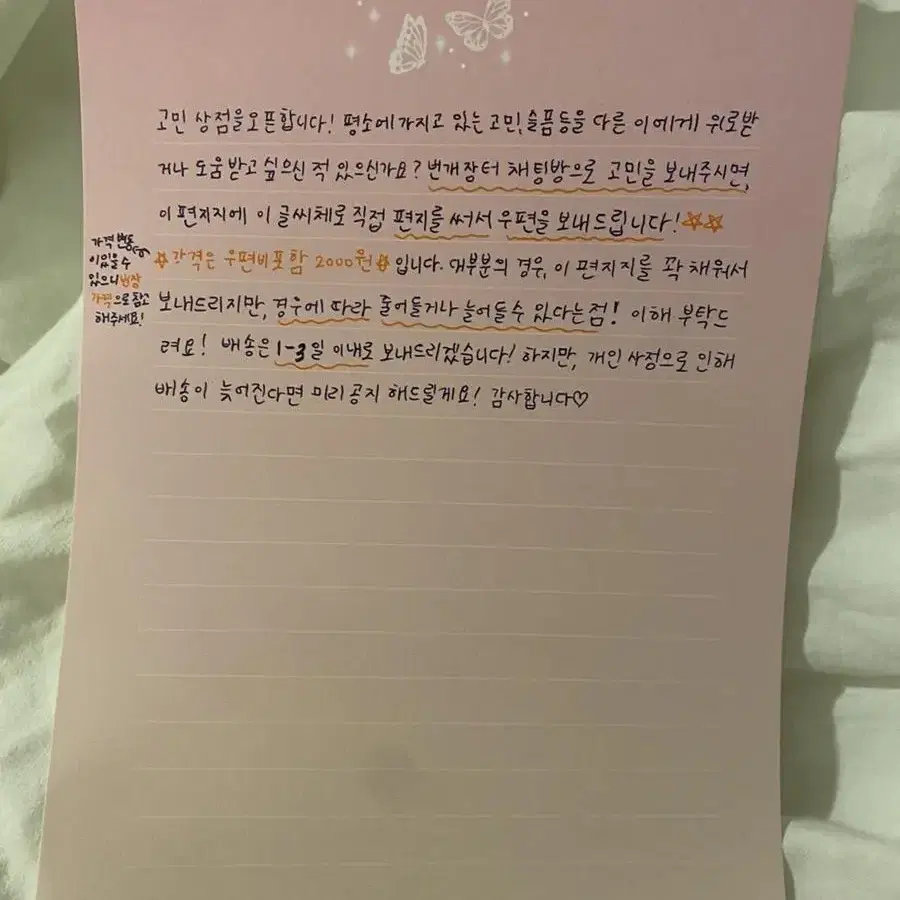 고민 상점을오픈합니다! 평소에가지고 있는 고민,슬픔등을 다른 이에게 위로받
거나 도움받고 싶으신 적 있으신가요? 번개장터 채팅방으로 고민을 보내주시면,
이 편지지에 이 글씨체로 직접 편지를 써서 우편을 보내드립니다!☆☆
☆가격은 우편비포함 2000원☆입니다. 대부분의 경우, 이 편지지를 꽉 채워서
보내드리지만, 경우에 따라 줄어들거나 늘어들수 있다는점! 이해 부탁드
려요! 배송은 1-3일 이내로 보내드리겠습니다! 하지만, 개인 사정으로 인해
배송이 늦어진다면 미리공지 해드릴게요! 감사합니다♡
가격 변동
이있을수
있으니번장
가격으로 참고
해주세요!